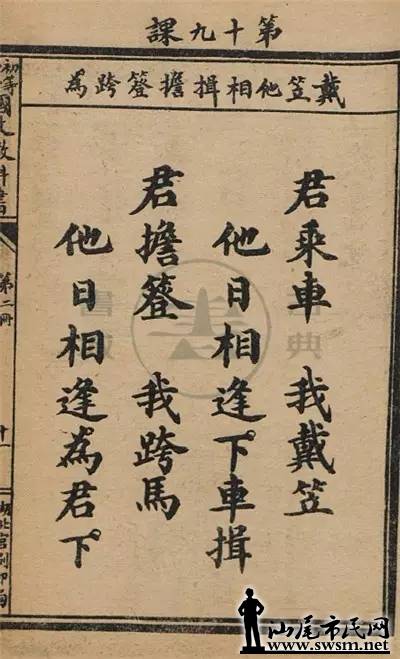 第十九課
戴笠他相揖擔簦跨為
君乘車 我戴笠
他日相逢下車揖
君擔簦 我跨馬
他日相逢為君下
初等國文教科書
第二冊
十一
湖北官刷印局
汕尾市民网
www.swsm.net